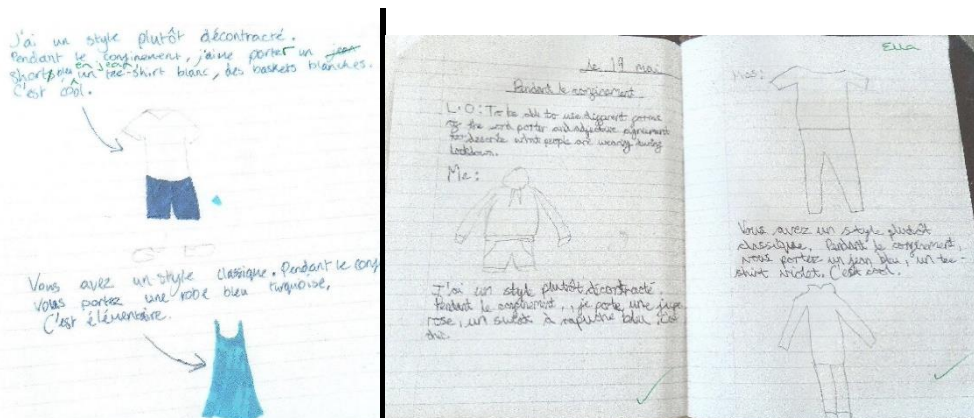 J'ai un style plutôt décontracté.
Pendant le confinement, j'aime porter un jean
short en jean, un tee-shirt blanc, des baskets blanches.
C'est côol.
Vous avez un style classique. Pendant le conf
vous portez une robe bleu turquoise.
C'est élémentaire.
Le 19 mai
Pendant le confinement
L.O: To be able to use different forms
of the verb porter and adjective agreement
to describe what people are wearing during
lockdown.
Me:
J'ai un style plutôt décontracté.
Pendant le confinement, je porte une jupe
rose, un sweat à capuche bleu.
chic.
Ella
Miss:
Vous avez un style plutôt
classique. Pendant le confinement,
vous portez un jean bleu, un tee-
shirt violet. C'est cool.